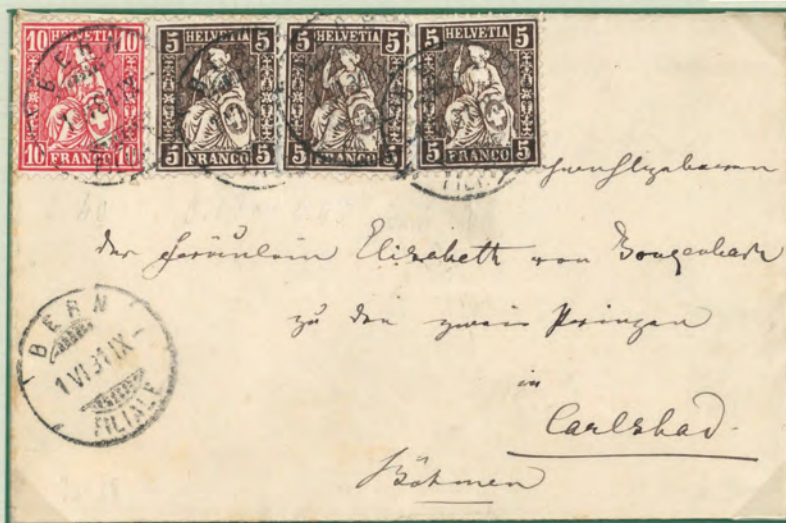 10 HELVETIA 10
10 FRANCO 10
5 HELVETIA 5
5 FRANCO 5
5 HELVETIA 5
5 FRANCO 5
5 HELVETIA 5
5 FRANCO 5
der Fräulein Elisabeth von
zu den zwei Prinzen
in
Carlsbad.
Böhmen
BERN
1 VI 81 IX -
FILIALE